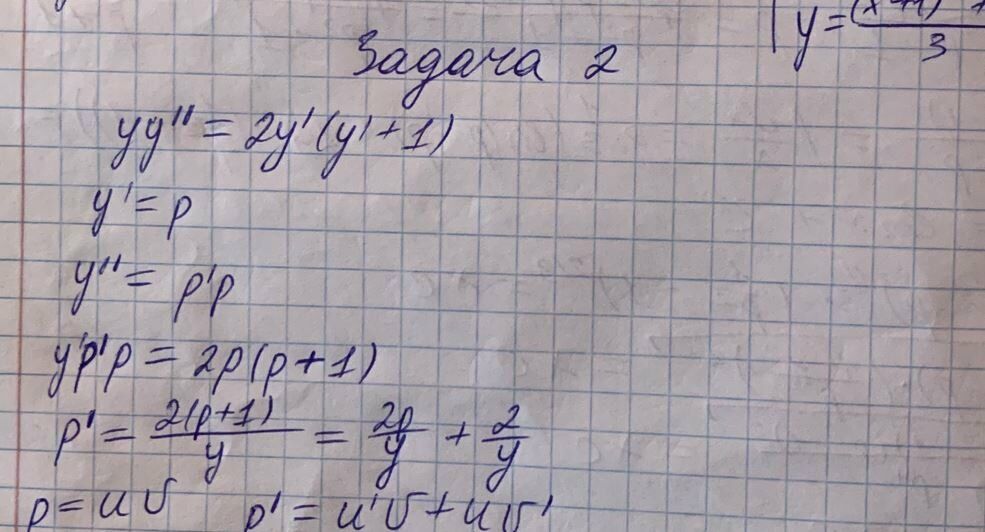 y = (x+1)
3
Задача 2
yy'' = 2y'(y'+1)
y' = p
y'' = p'p
yp'p = 2p(p+1)
p' = 2(p+1)/y = 2p/y + 2/y
p = uv p' = u'v + uv'